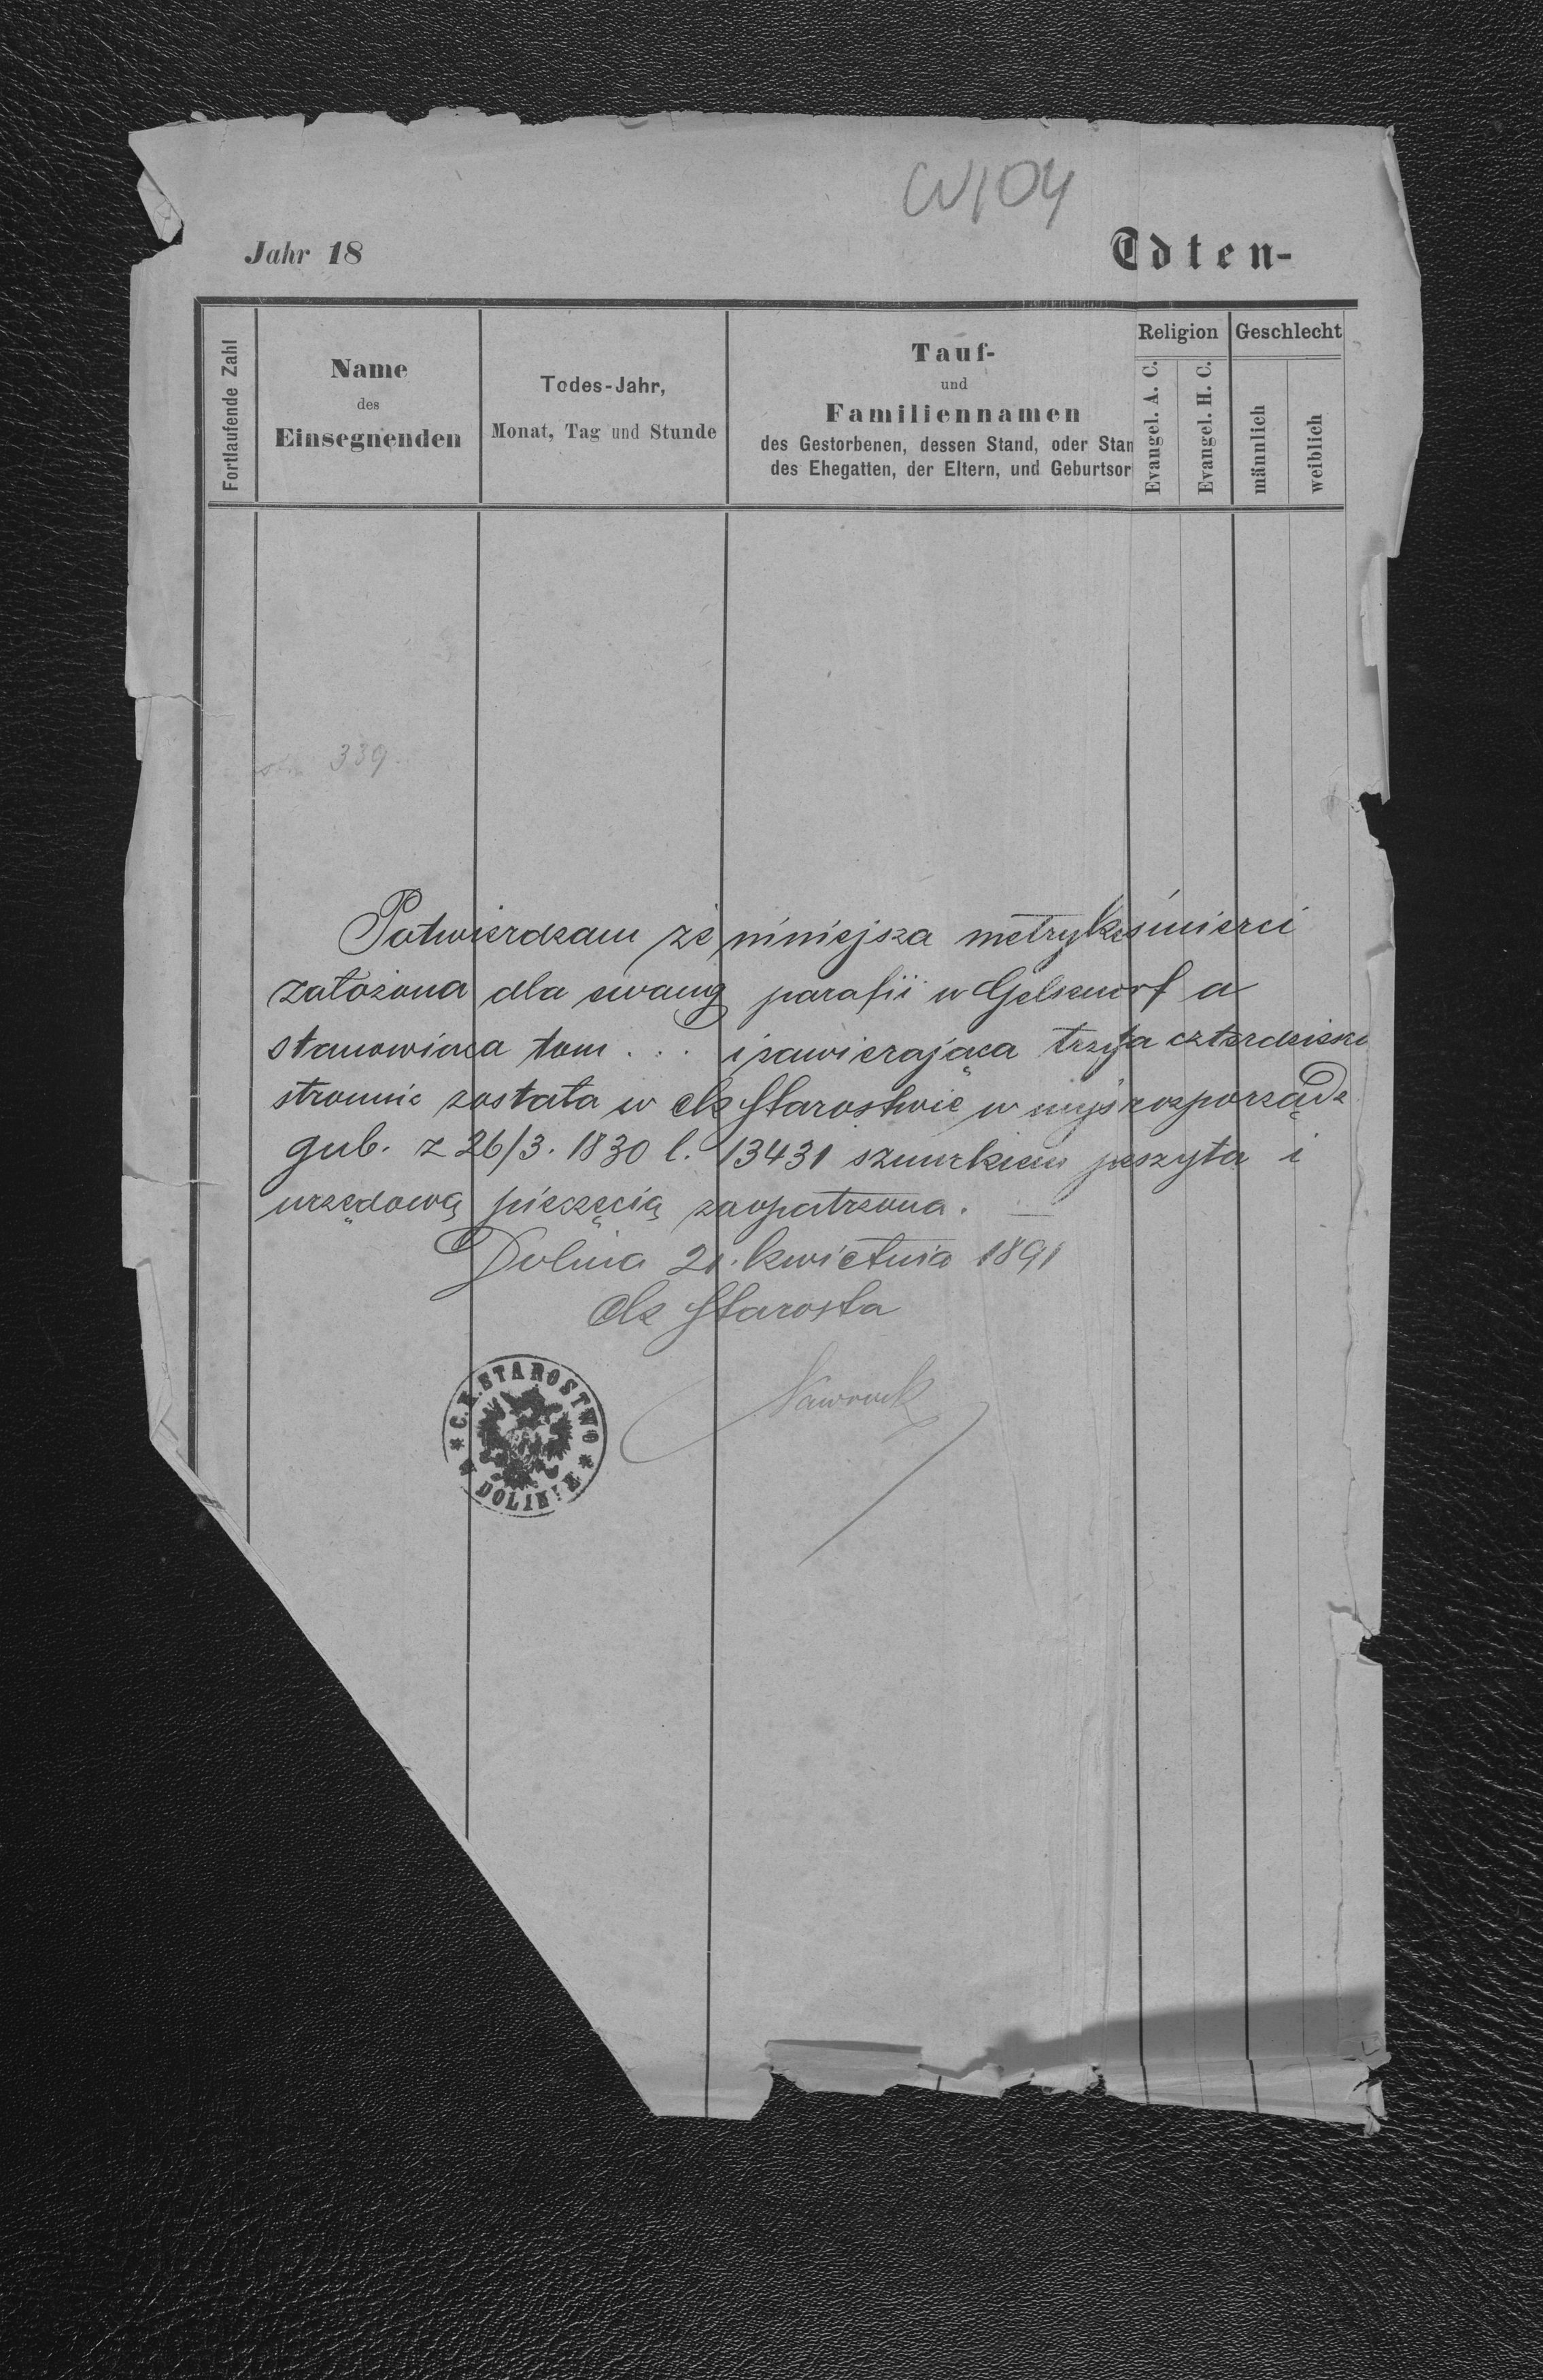 CV104
Jahr 18
Todten-
Fortlaufende Zahl
Name
des
Einsegnenden
Todes-Jahr,
Monat, Tag und Stunde
Tauf-
und
Familiennamen
des Gestorbenen, dessen Stand, oder Stan
des Ehegatten, der Eltern, und Geburtsor
Religion
Evangel. A. C.
Evangel. H. C.
Geschlecht
männlich
weiblich
339.
Potwierdzam że niniejsza metryka śmierci
założona dla ewang parafii w Gelsendorf a
stanowiąca tom . . . i zawierająca trzysta czterdzieści
stronnic została w ck Starostwie w myśl rozporządz
gub. z 26/3. 1830 l. 13431 sznurkiem przeszyta i
urzędową pieczęcią zaopatrzona. —
Dolina 21. kwietnia 1891
Ck Starosta
* C. K. STAROSTWO * W DOLINIE